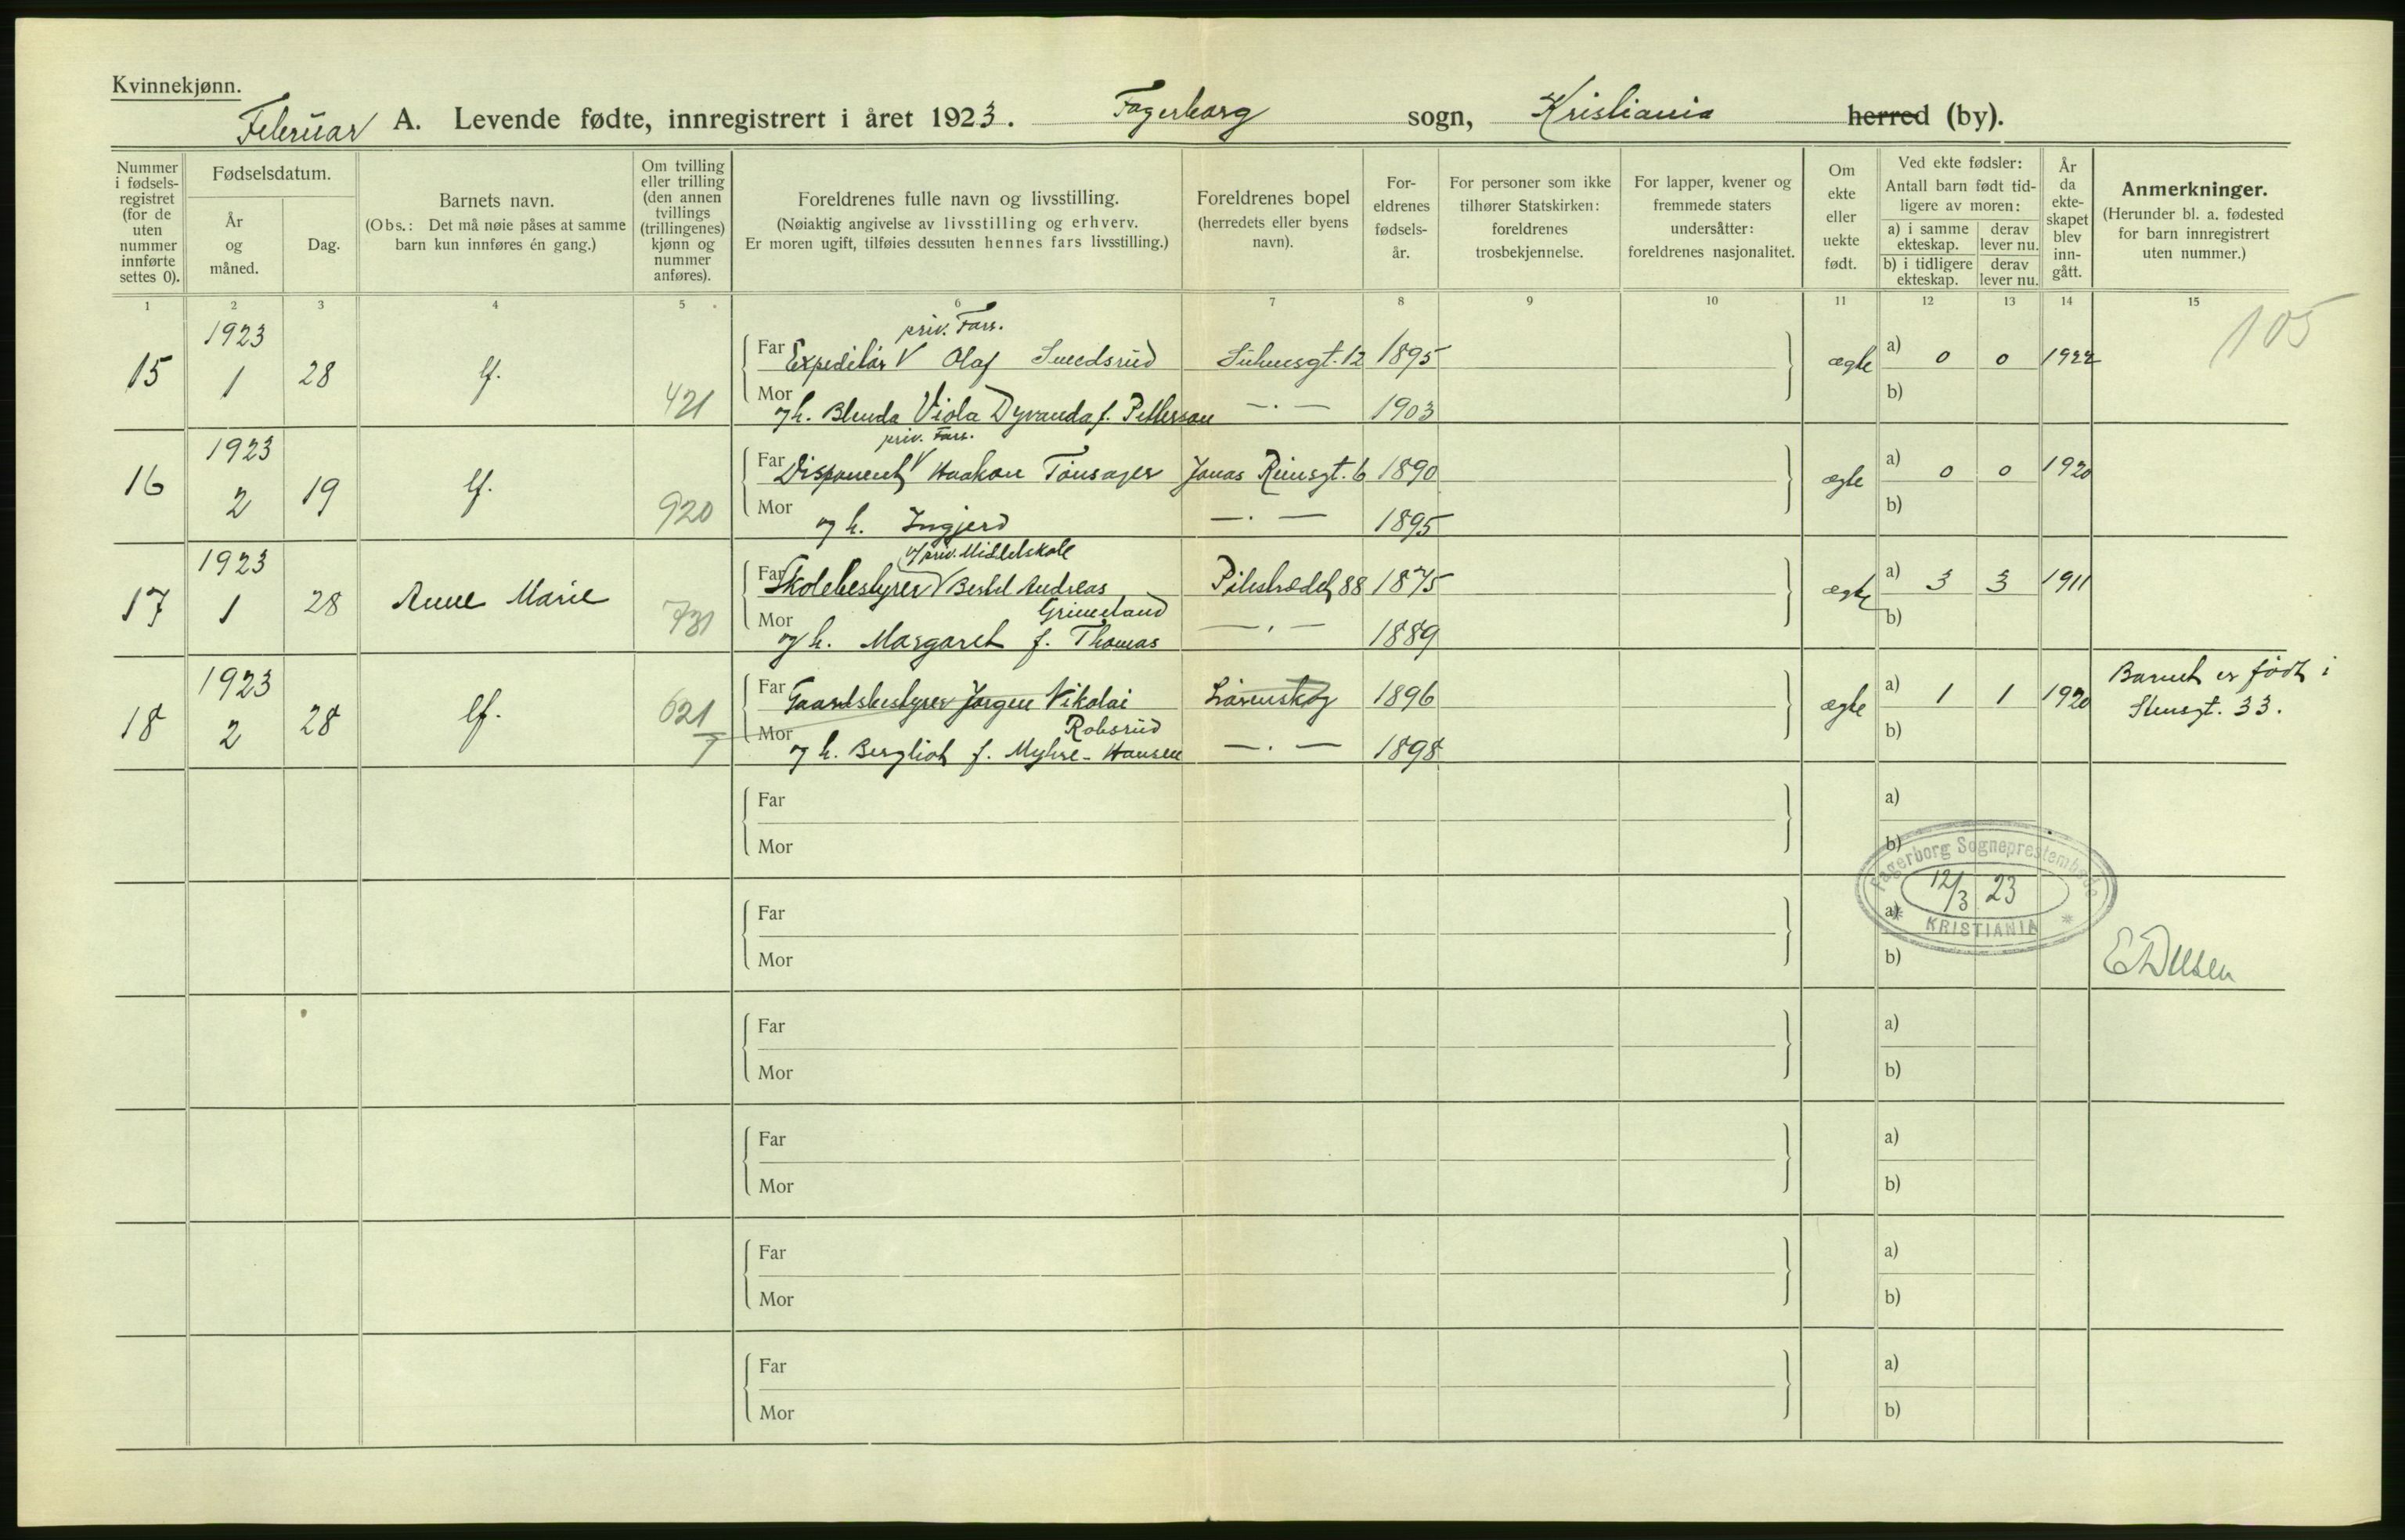 Kvinnekjønn.
Februar A. Levende fødte, innregistrert i året 1923. Fagerborg sogn, Kristiania herred (by).
Nummer i fødsels-registret (for de uten nummer innførte settes 0).
Fødselsdatum.
År og måned.
Dag.
Barnets navn.
(Obs.: Det må nøie påses at samme barn kun innføres én gang.)
Om tvilling eller trilling (den annen tvillings (trillingenes) kjønn og nummer anføres).
Foreldrenes fulle navn og livsstilling.
(Nøiaktig angivelse av livsstilling og erhverv.
Er moren ugift, tilføies dessuten hennes fars livsstilling.)
Foreldrenes bopel
(herredets eller byens navn).
For-eldrenes fødsels-år.
For personer som ikke tilhører Statskirken: foreldrenes trosbekjennelse.
For lapper, kvener og fremmede staters undersåtter: foreldrenes nasjonalitet.
Om ekte eller uekte født.
Ved ekte fødsler:
Antall barn født tid-ligere av moren:
a) i samme ekteskap.
derav lever nu.
b) i tidligere ekteskap.
derav lever nu.
År da ekte-skapet blev inn-gått.
Anmerkninger.
(Herunder bl. a. fødested for barn innregistrert uten nummer.)
1 2 3 4 5 6 7 8 9 10 11 12 13 14 15
105
priv. Farr.
15 1923 1 28 lf. 421 Far Expeditør V Olaf Smedsrud Suhmsgt. 12 1895 ægte a) 0 0 1922
Mor og h. Blenda Viola Dyvanda f. Petterson — . — 1903 b)
priv. Farr.
16 1923 2 19 lf. 920 Far Disponent V Haakon Tønsager Jonas Reinsgt. 6 1890 ægte a) 0 0 1920
Mor og h. Ingjerd — . — 1895 b)
v/ priv. Middelskole
17 1923 1 28 Anne Marie 731 Far Skolebestyrer V Bertel Andreas Pilestrædet 88 1875 ægte a) 3 3 1911
Grimeland
Mor og h. Margaret f. Thomas — . — 1889 b)
18 1923 2 28 lf. 621 Far Gaardsbestyrer Jørgen Nikolai Lørenskog 1896 ægte a) 1 1 1920 Barnet er født i
Robsrud
Stensgt. 33.
7 Mor og h. Bergliot f. Myhre-Hansen — . — 1898 b)
Far a)
Mor b)
Fagerborg Sogneprestembede
12/3 23
KRISTIANIA
Far a)
Mor b)
Far a)
Mor b)
Far a)
Mor b)
Far a)
Mor b)
Far a)
Mor b)